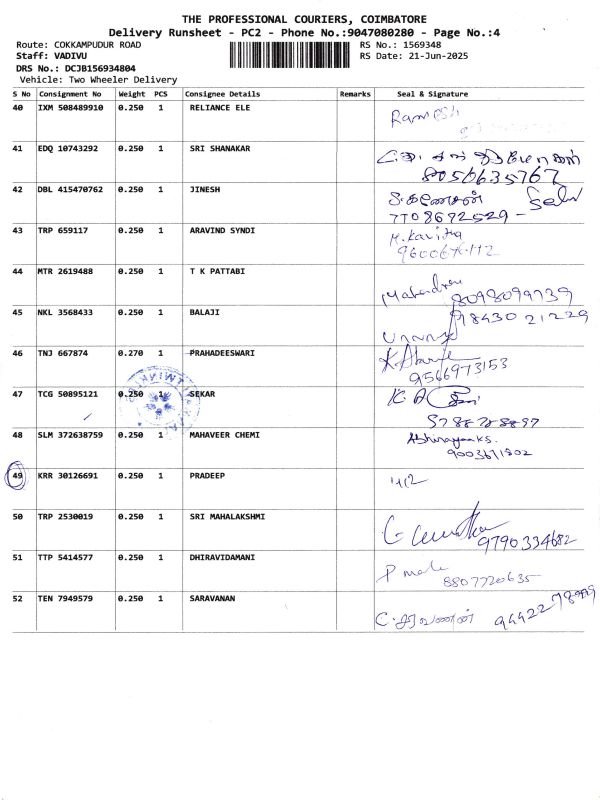 THE PROFESSIONAL COURIERS, COIMBATORE
Delivery Runsheet - PC2 - Phone No.:9047080280 - Page No.:4
Route: COKKAMPUDUR ROAD
RS No.: 1569348
Staff: VADIVU
RS Date: 21-Jun-2025
DRS No.: DCJB156934804
Vehicle: Two Wheeler Delivery
S No Consignment No Weight PCS Consignee Details Remarks Seal & Signature
40 IXM 508489910 0.250 1 RELIANCE ELE Ramesh
41 EDQ 10743292 0.250 1 SRI SHANAKAR
8050635767
42 DBL 415470762 0.250 1 JINESH S. கணேசன்
7708692529 -
43 TRP 659117 0.250 1 ARAVIND SYNDI M. Kavitha
44 MTR 2619488 0.250 1 T K PATTABI
Mahendran 8098099739
45 NKL 3568433 0.250 1 BALAJI 9843021229
46 TNJ 667874 0.270 1 PRAHADEESWARI
9566973153
47 TCG 50895121 0.250 1 SEKAR
48 SLM 372638759 0.250 1 MAHAVEER CHEMI
9003671802
49 KRR 30126691 0.250 1 PRADEEP
50 TRP 2530019 0.250 1 SRI MAHALAKSHMI
9790334682
51 TTP 5414577 0.250 1 DHIRAVIDAMANI P male
8807720635
52 TEN 7949579 0.250 1 SARAVANAN C. சரவணன்